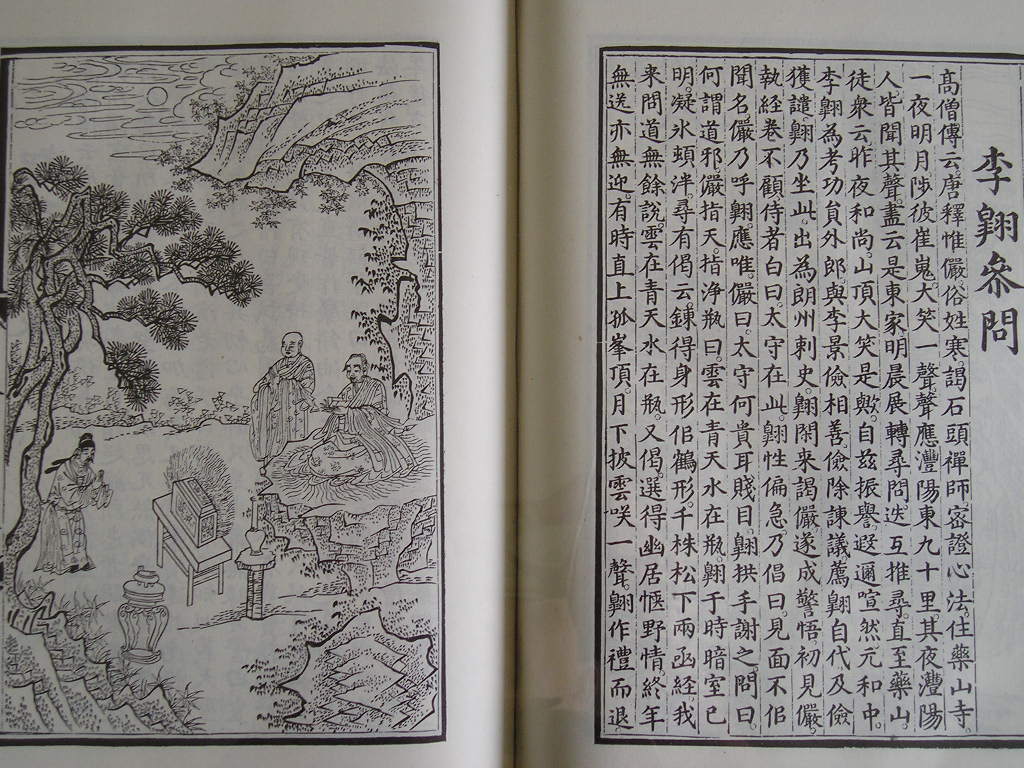 李翱叅問
高僧傳云唐釋惟儼俗姓寒謁石頭禪師密證心法住藥山寺
一夜明月陟彼崔嵬大笑一聲聲應澧陽東九十里其夜澧陽
人皆聞其聲盡云是東家明晨展轉尋問迭互推尋直至藥山
徒衆云昨夜和尚山頂大笑是歟自兹振譽遐邇喧然元和中
李翱為考功員外郎與李景儉相善儉除諫議薦翱自代及儉
獲譴翱乃坐此出為朗州刺史翱閑來謁儼遂成警悟初見儼
執經卷不顧侍者白曰太守在此翱性偏急乃倡曰見面不似
聞名儼乃呼翱應唯儼曰太守何貴耳賤目翱拱手謝之問曰
何謂道邪儼指天指浄瓶曰雲在青天水在瓶翱于時暗室已
明疑氷頓泮尋有偈云鍊得身形佀鶴形千株松下兩函經我
来問道無餘説雲在青天水在瓶又偈選得幽居愜野情終年
無送亦無迎有時直上孤峯頂月下披雲咲一聲翱作禮而退